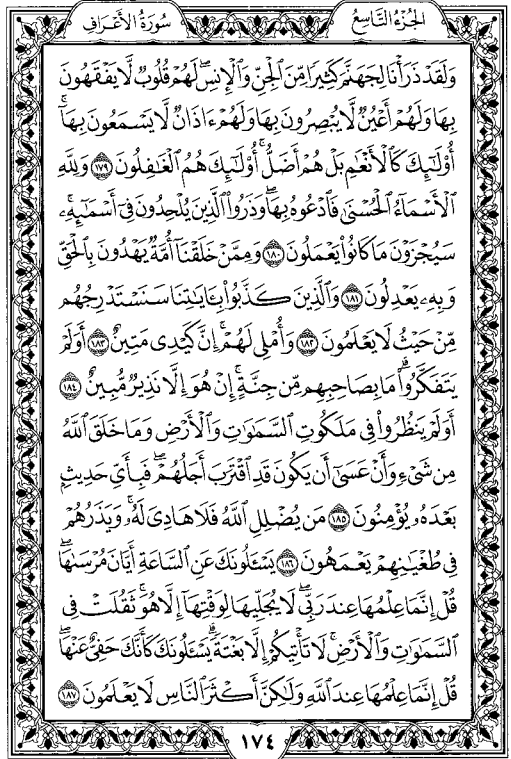 الجزء التاسع
سورة الأعراف
وَلَقَدْ ذَرَأْنَا لِجَهَنَّمَ كَثِيرًا مِّنَ ٱلْجِنِّ وَٱلْإِنسِ ۖ لَهُمْ قُلُوبٌ لَّا يَفْقَهُونَ
بِهَا وَلَهُمْ أَعْيُنٌ لَّا يُبْصِرُونَ بِهَا وَلَهُمْ ءَاذَانٌ لَّا يَسْمَعُونَ بِهَآ ۚ
أُو۟لَـٰٓئِكَ كَٱلْأَنْعَـٰمِ بَلْ هُمْ أَضَلُّ ۚ أُو۟لَـٰٓئِكَ هُمُ ٱلْغَـٰفِلُونَ ١٧٩ وَلِلَّهِ
ٱلْأَسْمَآءُ ٱلْحُسْنَىٰ فَٱدْعُوهُ بِهَا ۖ وَذَرُوا۟ ٱلَّذِينَ يُلْحِدُونَ فِىٓ أَسْمَـٰٓئِهِۦ ۚ
سَيُجْزَوْنَ مَا كَانُوا۟ يَعْمَلُونَ ١٨٠ وَمِمَّنْ خَلَقْنَآ أُمَّةٌ يَهْدُونَ بِٱلْحَقِّ
وَبِهِۦ يَعْدِلُونَ ١٨١ وَٱلَّذِينَ كَذَّبُوا۟ بِـَٔايَـٰتِنَا سَنَسْتَدْرِجُهُم
مِّنْ حَيْثُ لَا يَعْلَمُونَ ١٨٢ وَأُمْلِى لَهُمْ ۚ إِنَّ كَيْدِى مَتِينٌ ١٨٣ أَوَلَمْ
يَتَفَكَّرُوا۟ ۗ مَا بِصَاحِبِهِم مِّن جِنَّةٍ ۚ إِنْ هُوَ إِلَّا نَذِيرٌ مُّبِينٌ ١٨٤
أَوَلَمْ يَنظُرُوا۟ فِى مَلَكُوتِ ٱلسَّمَـٰوَٰتِ وَٱلْأَرْضِ وَمَا خَلَقَ ٱللَّهُ
مِن شَىْءٍ وَأَنْ عَسَىٰٓ أَن يَكُونَ قَدِ ٱقْتَرَبَ أَجَلُهُمْ ۖ فَبِأَىِّ حَدِيثٍۭ
بَعْدَهُۥ يُؤْمِنُونَ ١٨٥ مَن يُضْلِلِ ٱللَّهُ فَلَا هَادِىَ لَهُۥ ۚ وَيَذَرُهُمْ
فِى طُغْيَـٰنِهِمْ يَعْمَهُونَ ١٨٦ يَسْـَٔلُونَكَ عَنِ ٱلسَّاعَةِ أَيَّانَ مُرْسَىٰهَا ۖ
قُلْ إِنَّمَا عِلْمُهَا عِندَ رَبِّى ۖ لَا يُجَلِّيهَا لِوَقْتِهَآ إِلَّا هُوَ ۚ ثَقُلَتْ فِى
ٱلسَّمَـٰوَٰتِ وَٱلْأَرْضِ ۚ لَا تَأْتِيكُمْ إِلَّا بَغْتَةً ۗ يَسْـَٔلُونَكَ كَأَنَّكَ حَفِىٌّ عَنْهَا ۖ
قُلْ إِنَّمَا عِلْمُهَا عِندَ ٱللَّهِ وَلَـٰكِنَّ أَكْثَرَ ٱلنَّاسِ لَا يَعْلَمُونَ ١٨٧
١٧٤